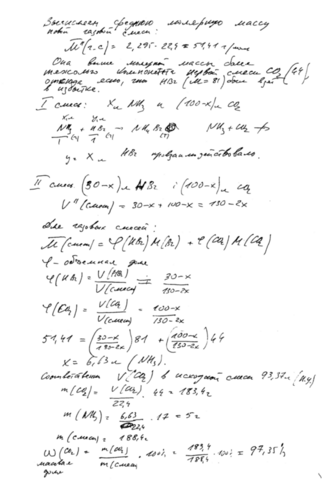 Вычисляем среднюю молярную массу
новой газовой смеси:
M(г.с) = 2,295·22,4 = 51,41 г/моль
Она выше молярной массы более
тяжелого компонента первой смеси CO₂ (44),
ясно, что HBr (M=81) был взят
в избытке.
I смесь: X л NH₃ и (100-x) л CO₂
X л y л
NH₃ + HBr → NH₄Br NH₃ + CO₂
1 1
y = X л HBr прореагировало.
II смесь (30-x) л HBr и (100-x) л CO₂
V"(смеси) = 30-x + 100-x = 130-2x
Для газовых смесей:
M(смеси) = φ(HBr) M(HBr) + φ(CO₂) M(CO₂)
φ - объемная доля
φ(HBr) = V(HBr)/V(смеси) = 30-x/130-2x
φ(CO₂) = V(CO₂)/V(смеси) = 100-x/130-2x
51,41 = (30-x/130-2x) 81 + (100-x/130-2x) 44
X = 6,63 л (NH₃).
Соответственно V(CO₂) в исходной смеси 93,37 л (н.у)
m(CO₂) = V(CO₂)/22,4 · 44 = 183,4 г
m(NH₃) = 6,63/22,4 · 17 = 5 г
m(смеси) = 188,4 г
ω(CO₂) = m(CO₂)/m(смеси) · 100% = 183,4/188,4 · 100% = 97,35%
массовая
доля